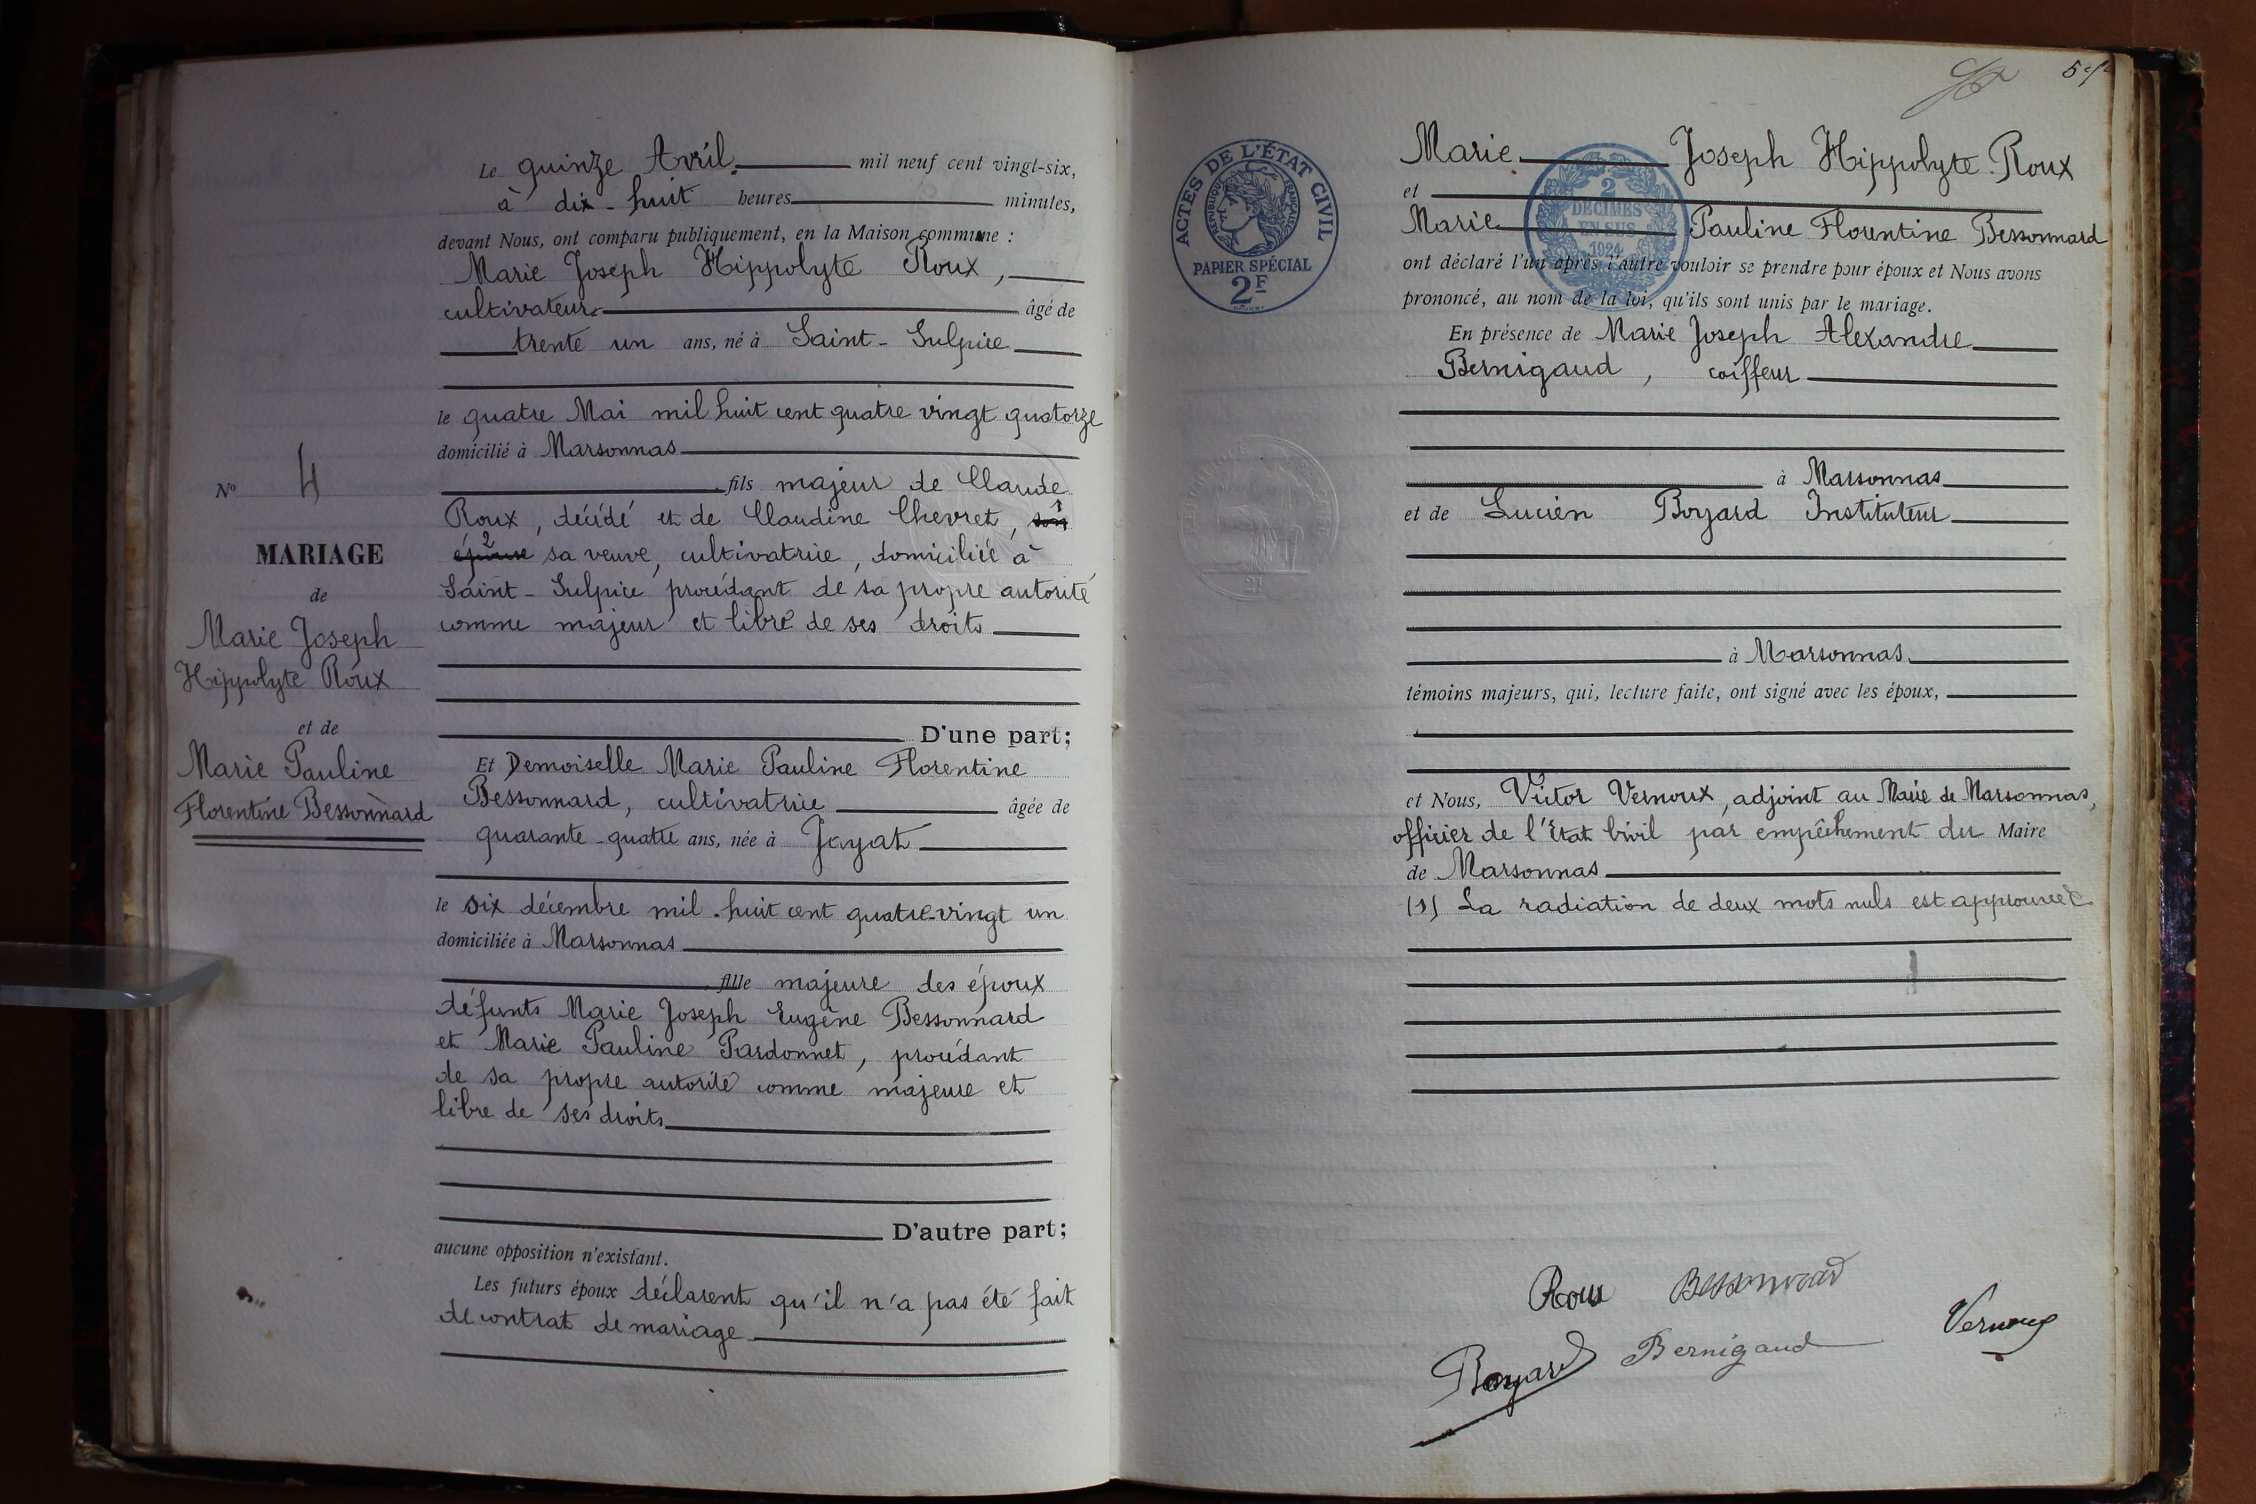 Le quinze Avril. mil neuf cent vingt-six,
à dix-huit heures minutes,
devant Nous, ont comparu publiquement, en la Maison commune :
Marie Joseph Hippolyte Roux,
cultivateur âgé de
trente un ans, né à Saint-Sulpice
le quatre Mai mil huit cent quatre vingt quatorze
domicilié à Marsonnas
fils majeur de Claude
Roux, décédé et de Claudine Chevret, son
épouse sa veuve, cultivatrice, domiciliée à
Saint-Sulpice procédant de sa propre autorité
comme majeur et libre de ses droits
D'une part;
Et Demoiselle Marie Pauline Florentine
Bessonnard, cultivatrice âgée de
quarante-quatre ans, née à Jayat
le six décembre mil-huit cent quatre-vingt un
domiciliée à Marsonnas
fille majeure des époux
défunts Marie Joseph Eugène Bessonnard
et Marie Pauline Pardonnet, procédant
de sa propre autorité comme majeure et
libre de ses droits
D'autre part;
aucune opposition n'existant.
Les futurs époux déclarent qu'il n'a pas été fait
de contrat de mariage
N° 4
MARIAGE
de
Marie Joseph
Hippolyte Roux
et de
Marie Pauline
Florentine Bessonnard
ACTES DE L'ÉTAT CIVIL
RÉPUBLIQUE FRANÇAISE
PAPIER SPÉCIAL
2F
2
DÉCIMES
EN SUS
1924
Marie Joseph Hippolyte Roux
et
Marie Pauline Florentine Bessonnard
ont déclaré l'un après l'autre vouloir se prendre pour époux et Nous avons
prononcé, au nom de la loi, qu'ils sont unis par le mariage.
En présence de Marie Joseph Alexandre
Bernigaud, coiffeur
à Marsonnas
et de Lucien Boyard Instituteur
à Marsonnas
témoins majeurs, qui, lecture faite, ont signé avec les époux,
et Nous, Victor Vernoux, adjoint au Maire de Marsonnas,
officier de l'État Civil par empêchement du Maire
de Marsonnas
(1) La radiation de deux mots nuls est approuvée
Roux Bessonnard
Vernoux
Boyard Bernigaud